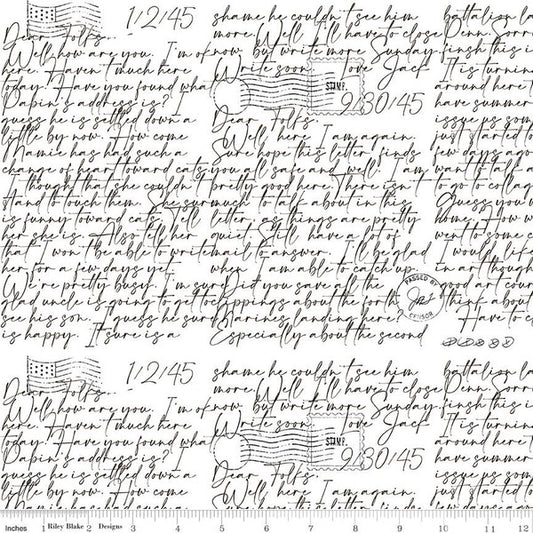 1/2/45
Dear Folks..
Well how are you. I'm o
here. Haven't much here
today. Have you found wha
Papin's address is?
guess he is settled down a
little by now. How come
Mamie has had such a
change of heart toward cats
I thought that she couldn't
stand to touch them. She sur
is funny toward cats. Tell
her she is. Also tell her
that I won't be able to write
her for a few days yet.
We're pretty busy. I'm sure
glad uncle is going to get to
see his son. I guess he sure
is happy. It sure is a
shame he couldn't see him
more. Well I'll have to close
now, but write more Sunday.
Write soon. Love Jack
STAMP.
9/30/45
Dear Folks:
Well here I am again.
Sure hope this letter finds
you all safe and well. I am
pretty good here. There isn't
much to talk about in this
letter, as things are pretty
quiet. Still have a lot of
mail to answer. I'll be glad
when I am able to catch up.
Did you save all the
clippings about the forth
Marines landing here?
Especially about the second
PASSED BY
CENSOR
battalion
Penn.
finsh this
It is turnin
around here t
have summer
issue us som
just started to
few days ago
want to talk a
to go to collag
Guess you w
home. How w
went to some
I would like
in art though
good art cour
think about
Have to c
1/2/45
Dear Folks..
Well how are you. I'm o
here. Haven't much here
today. Have you found wha
Papin's address is?
guess he is settled down a
little by now. How come
shame he couldn't see him
more. Well I'll have to close
now, but write more Sunday.
Write soon. Love Jack
STAMP.
9/30/45
Dear Folks:
Well here I am again.
Sure hope this letter finds
battalion
Penn.
finsh this
It is turnin
around here t
have summer
issue us som
just started to
few days ago
Inches 1 Riley Blake 2 Designs 3 4 5 6 7 8 9 10 11 12